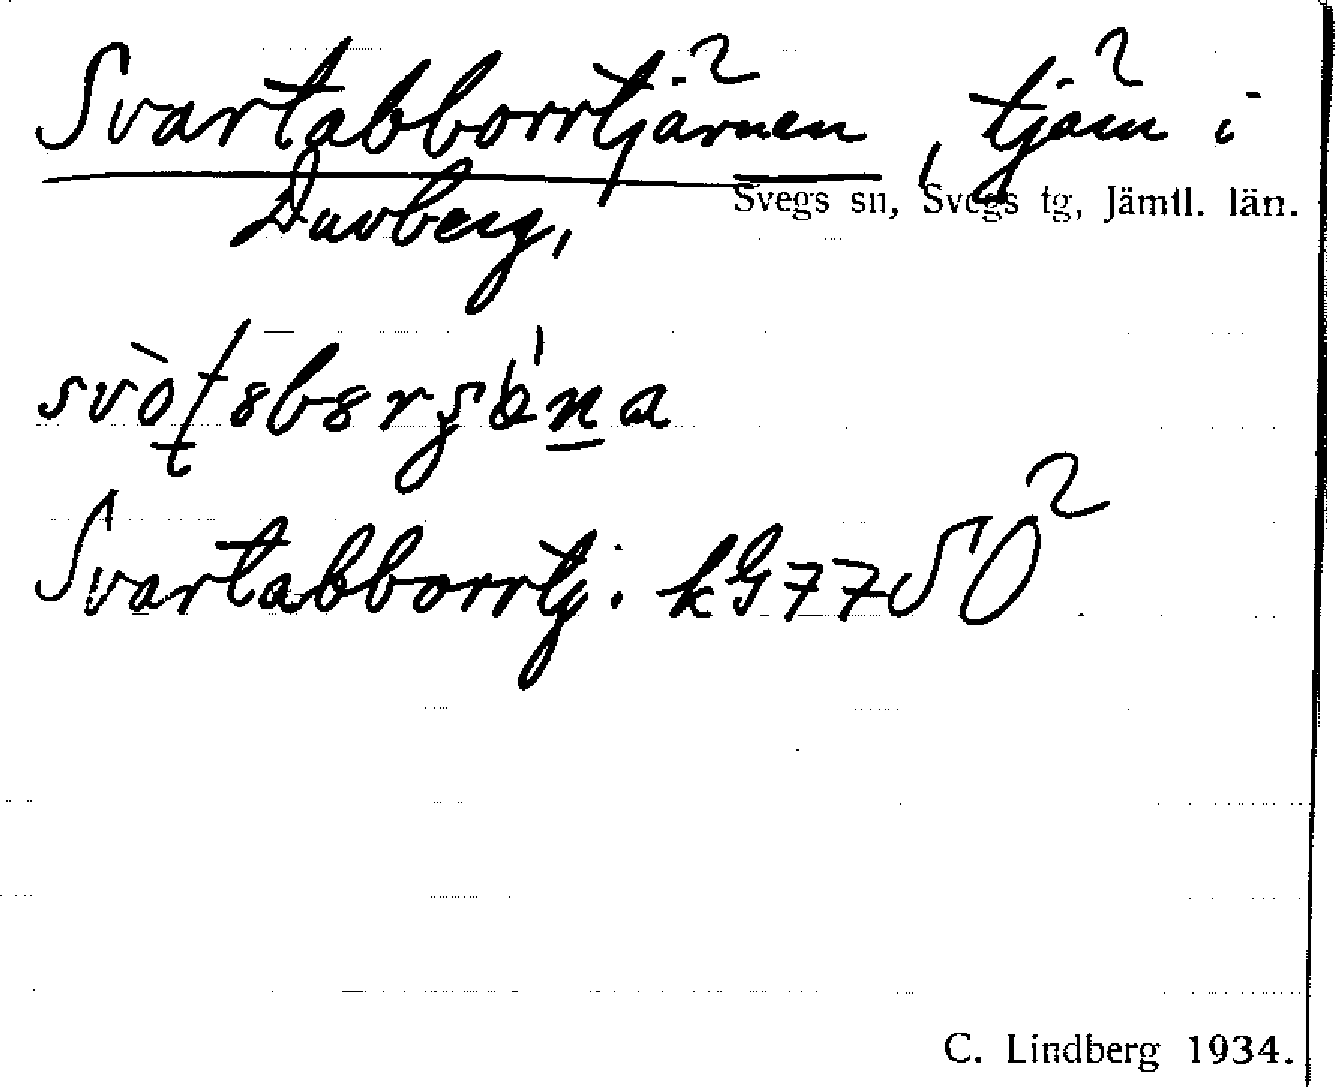 Svartabborrtjärnen, tjärn i
Duvberg, Svegs sn, Svegs tg, Jämtl. län.
Svartabborrtj. kG 77 SO²
C. Lindberg 1934.